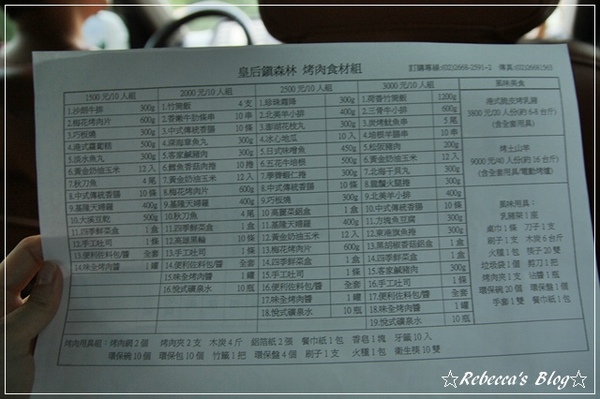 皇后鎮森林 烤肉食材組
訂購專線:(02)2668-2591~2 傳真:(02)26681983
1500 元/10 人組
1.沙朗牛排 300g
2.梅花烤肉片 600g
3.巧板燒 300g
4.港式蘿蔔糕 500g
5.淡水魚丸 300g
6.黃金奶油玉米 12 入
7.秋刀魚 4 尾
8.中式傳統香腸 10 條
9.基隆天婦羅 400g
10.大溪豆乾 500g
11.四季鮮菜盒 1 盒
12.手工吐司 1 條
13.便利佐料包/醬 全套
14.味全烤肉醬 1 罐
2000 元/10 人組
1.竹筒飯 4 支
2.香嫩牛肋條串 10 串
3.中式傳統香腸 10 條
4.深海章魚丸 300g
5.客家鹹豬肉 300g
6.鱈魚香菇肉捲 10 捲
7.黃金奶油玉米 12 入
8.梅花烤肉片 600g
9.基隆天婦羅 400g
10.秋刀魚 4 尾
11.四季鮮菜盒 1 盒
12.高纖黑輪 10 條
13.手工吐司 1 條
14.便利佐料包/醬 全套
15.味全烤肉醬 1 罐
16.悅式礦泉水 10 瓶
2500 元/10 人組
1.珍珠霜降 300g
2.北美羊小排 400g
3.澎湖花枝丸 300g
4.冰心地瓜 10 入
5.日式味噌魚 450g
6.五花牛培根 500g
7.季齊蝦仁捲 300g
8.中式傳統香腸 10 條
9.巧板燒 300g
10.高麗菜鋁盒 1 盒
11.基隆天婦羅 400g
12.黃金奶油玉米 12 入
13.梅花烤肉片 600g
14.四季鮮菜盒 1 盒
15.手工吐司 1 條
16.便利佐料包/醬 全套
17.味全烤肉醬 1 罐
18.悅式礦泉水 10 瓶
3000 元/10 人組
1.荷香竹筒飯 1200g
2.三骨牛小排 600g
3.炭烤魷魚串 5 尾
4.培根羊腸串 10 串
5.松阪豬肉 200g
6.黃金奶油玉米 12 入
7.北海干貝丸 300g
8.龍鬚火腿捲 300g
9.北美羊小排 400g
10.中式傳統香腸 10 條
11.方塊魚豆腐 300g
12.東港旗魚捲 300g
13.黑胡椒香菇鋁盒 1 盒
14.四季鮮菜盒 1 盒
15.客家鹹豬肉 300g
16.手工吐司 1 條
17.便利佐料包/醬 全套
18.味全烤肉醬 1 罐
19.悅式礦泉水 10 瓶
風味美食
港式脆皮烤乳豬
3800 元/20 人份(約 6-8 台斤)
(含全套用具)
烤土山羊
9000 元/40 人份(約 16 台斤)
(含全套用具/電動烤爐)
風味用具:
乳豬架 1 座
桌巾 1 條 刀子 1 支
刷子 1 支 木炭 6 台斤
火種 1 包 筷子 20 雙
垃圾袋 1 個 剪刀 1 把
烤肉夾 1 支 沾醬 1 瓶
環保碗 20 個 環保盤 1 個
手套 1 雙 餐巾紙 1 包
烤肉用具組:烤肉網 2 個 烤肉夾 2 支 木炭 4 斤 鋁箔紙 2 張 餐巾紙 1 包 香皂 1 塊 牙籤 10 入
環保碗 10 個 環保包 10 個 竹籤 1 把 環保盤 4 個 刷子 1 支 火種 1 包 衛生筷 10 雙
☆Rebecca's Blog☆